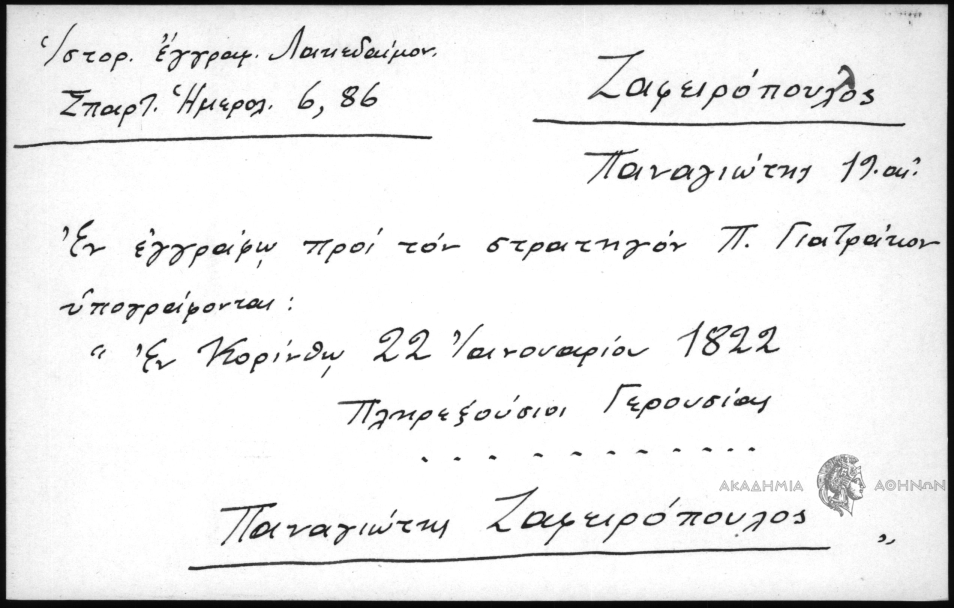 Ἱστορ. ἐγγραφ. Λακεδαίμον.
Σπαρτ. Ἡμερολ. 6, 86
Ζαφειρόπουλος
Παναγιώτης 19. αἰ.
Ἐν ἐγγράφῳ πρὸς τόν στρατηγόν Π. Γιατράκον
ὑπογράφονται:
" Ἐν Κορίνθῳ 22 Ἰανουαρίου 1822
Πληρεξούσιοι Γερουσίας
. . . . . . . . . . . .
ΑΚΑΔΗΜΙΑ ΑΘΗΝΩΝ
Παναγιώτης Ζαφειρόπουλος "